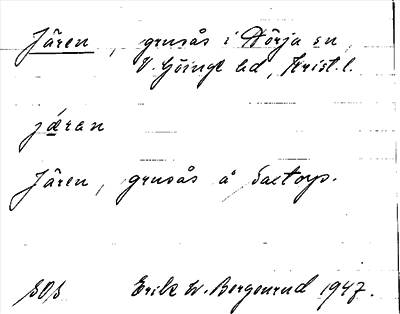 Jären, grusås i Nörja sn
V. Göinge hd, Krist. l.
jǽran
Jären, grusås å Saxtorp.
SOS Erik W. Bergenrud 1947.